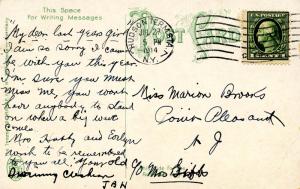 This Space
for Writing Messages
POST CARD
HUDSON TERMINAL
1914
N.Y.
My dear last years Girl
I am so sorry I can't
be with you this year.
I'm sure you must
miss me, you won't
have anybody to stand
on when a big wave
comes.
Mrs. and Evelyn
wish to be remembered
to you all. Your old
Swimming Cushion
J.B.H.
Miss Marion Brooks
Point Pleasant
N J
c/o Mrs Gibb